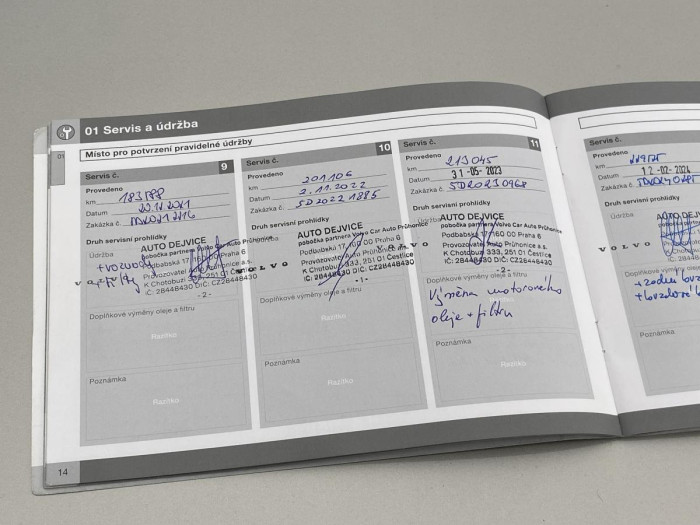 01 Servis a údržba
01
Místo pro potvrzení pravidelné údržby
Servis č. 9
Provedeno
km 183788
Datum
Zakázka č.
Druh servisní prohlídky
Údržba
AUTO DEJVICE
pobočka partnera Volvo Car Auto Průhonice
Podbabská 17, 160 00 Praha 6
Provozovatel Auto Průhonice a.s.
K Chotobuzi 333, 251 01 Čestlice
IČ: 28448430 DIČ: CZ28448430
- 2 -
Doplňkové výměny oleje a filtru
Razítko
Poznámka
Razítko
Servis č. 10
Provedeno
km 201106
Datum 2.11.2022
Zakázka č. SD20221885
Druh servisní prohlídky
AUTO DEJVICE
pobočka partnera Volvo Car Auto Průhonice
Podbabská 17, 160 00 Praha 6
Provozovatel Auto Průhonice a.s.
K Chotobuzi 333, 251 01 Čestlice
IČ: 28448430 DIČ: CZ28448430
VOLVO
- 1 -
Doplňkové výměny oleje a filtru
Razítko
Poznámka
Razítko
Servis č. 11
Provedeno
km 213045
Datum 31 -05- 2023
Zakázka č. SD20230968
Druh servisní prohlídky
Údržba
AUTO DEJVICE
pobočka partnera Volvo Car Auto Průhonice
Podbabská 17, 160 00 Praha 6
Provozovatel Auto Průhonice a.s.
K Chotobuzi 333, 251 01 Čestlice
IČ: 28448430 DIČ: CZ28448430
VOLVO
- 2 -
Doplňkové výměny oleje a filtru
Výměna motorového
oleje + filtru
Razítko
Poznámka
Razítko
Servis č.
Provedeno
km
Datum 12 -02- 2024
Zakázka č.
Druh servisní prohlídky
Údržba
AUTO DEJ
VOLVO
Doplňkové výměny oleje a
Poznámka
14